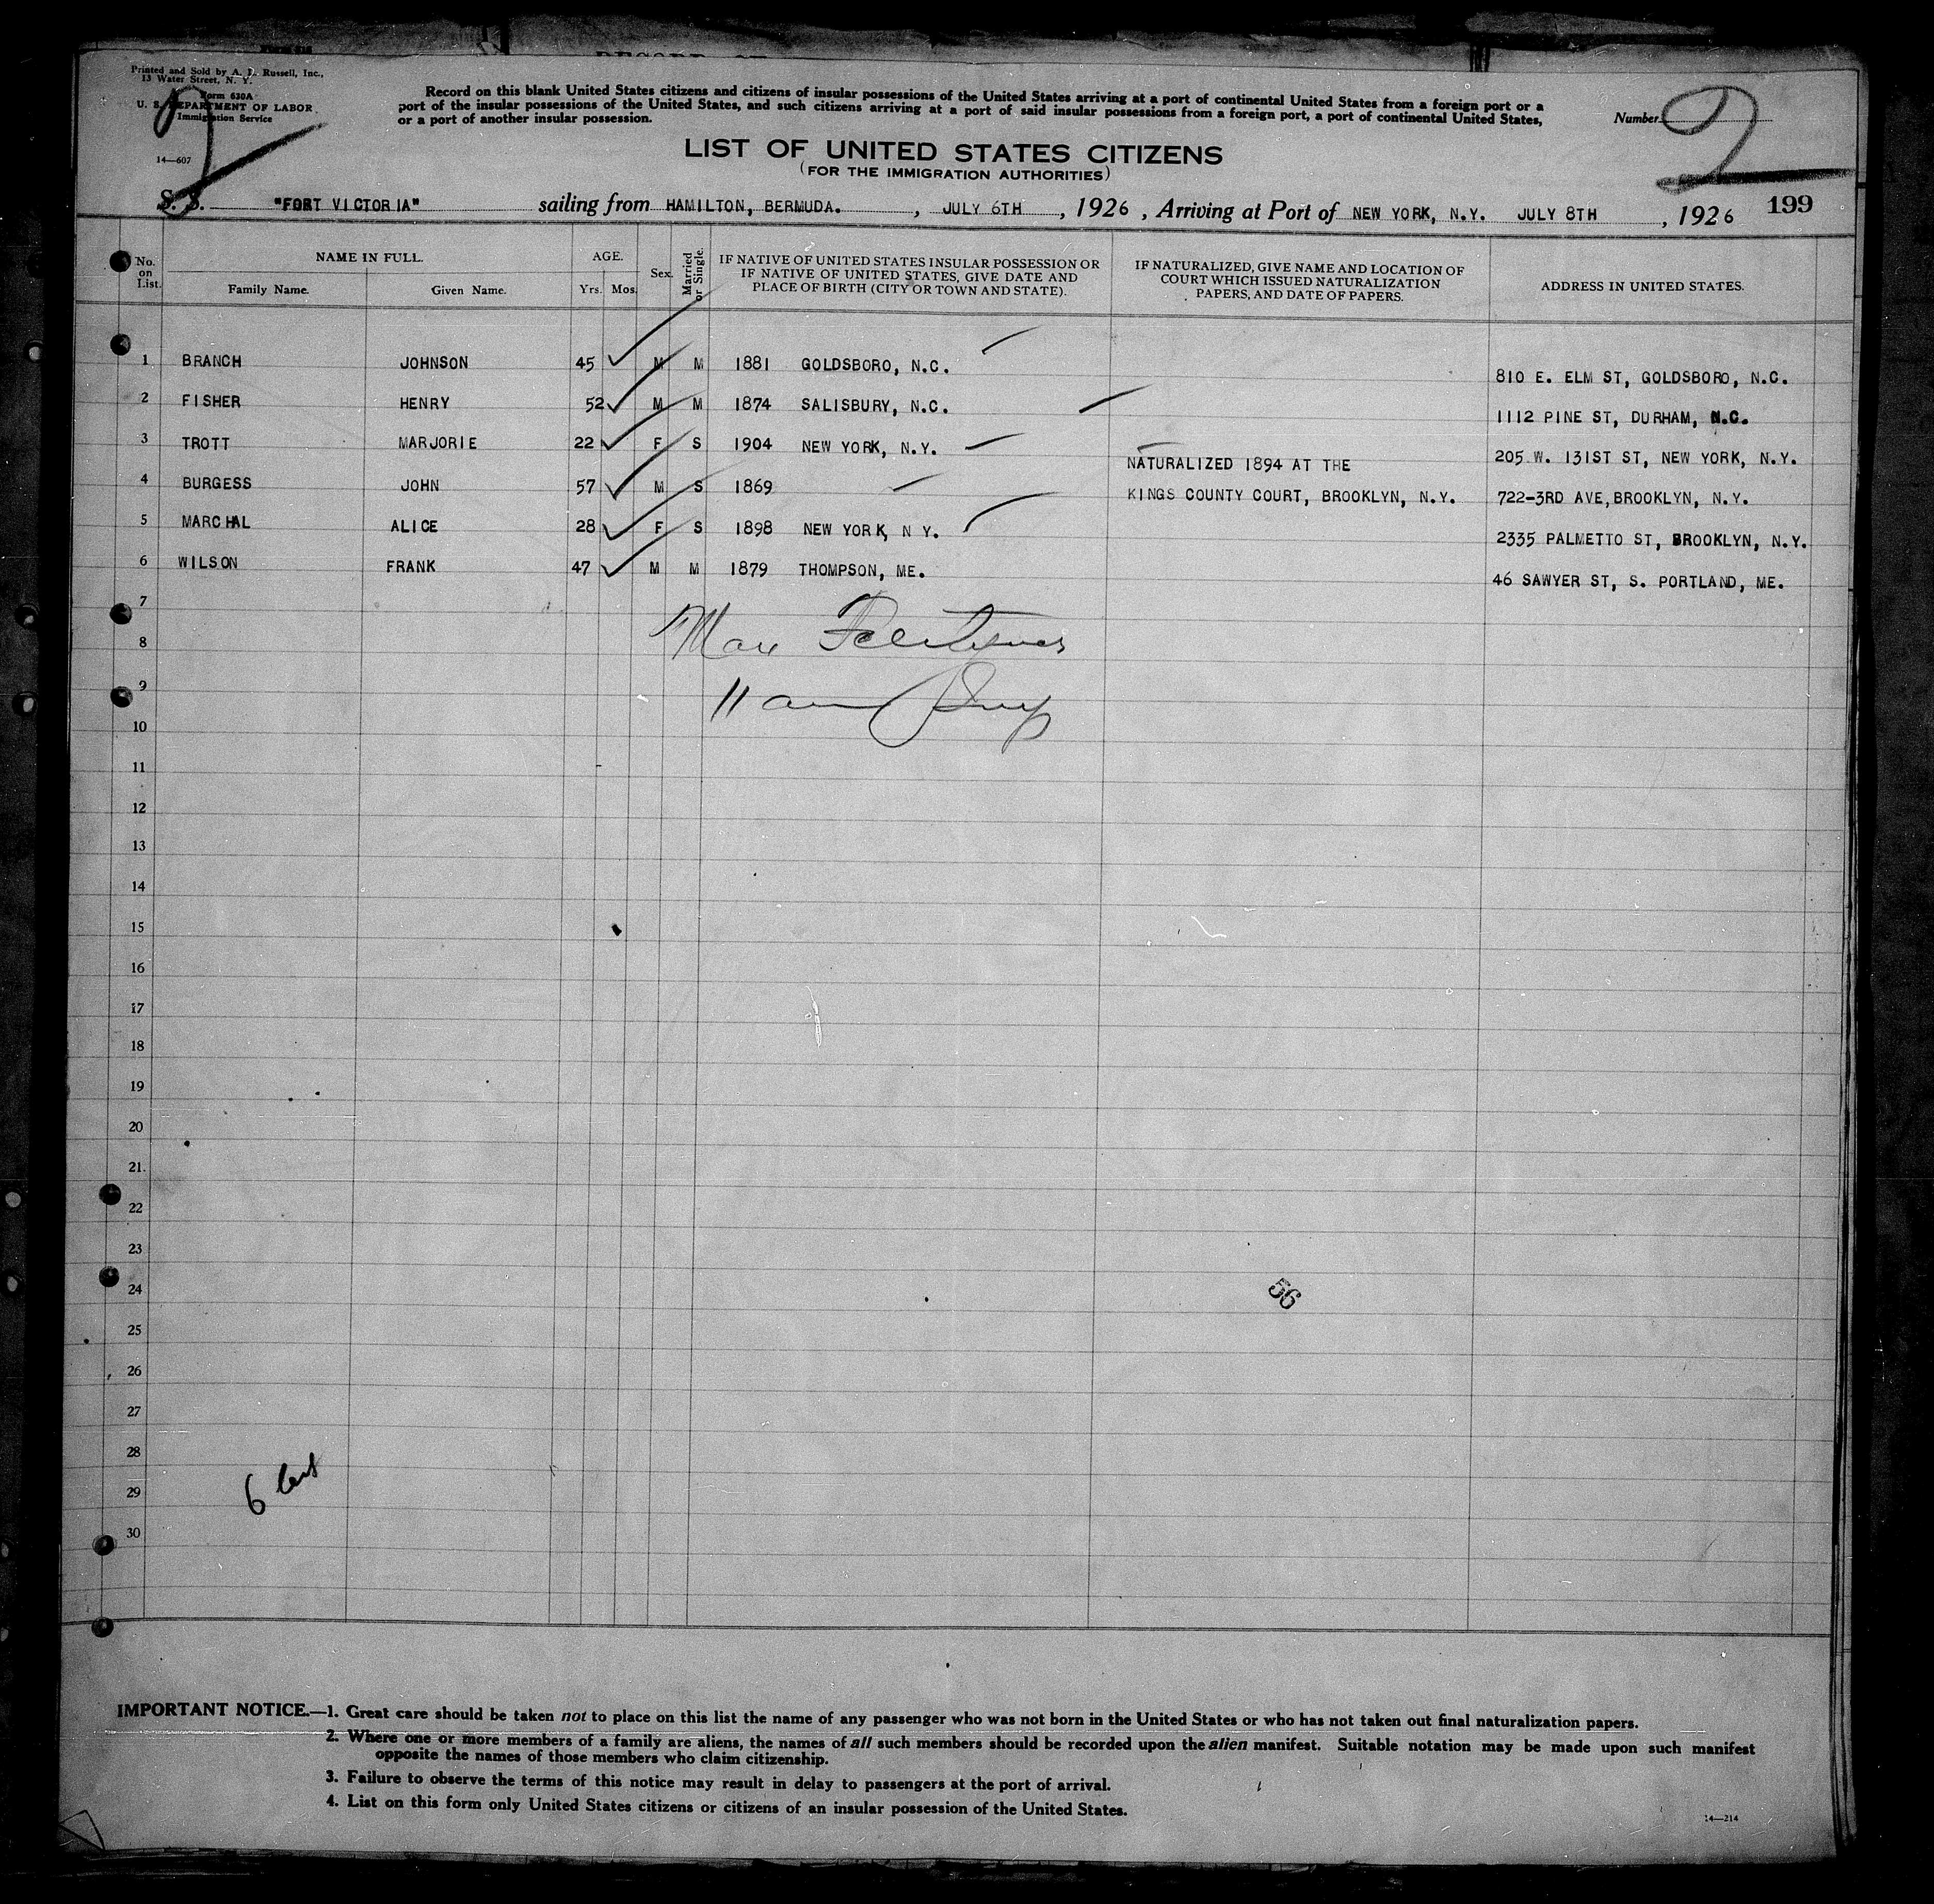 Printed and Sold by A. L. Russell, Inc.,
13 Water Street, N. Y.
Form 630A
U. S. DEPARTMENT OF LABOR
Immigration Service
14—607
Record on this blank United States citizens and citizens of insular possessions of the United States arriving at a port of continental United States from a foreign port or a
port of the insular possessions of the United States, and such citizens arriving at a port of said insular possessions from a foreign port, a port of continental United States,
or a port of another insular possession.
Number 2
LIST OF UNITED STATES CITIZENS
(FOR THE IMMIGRATION AUTHORITIES)
S. S. "FORT VICTORIA" sailing from HAMILTON, BERMUDA. , JULY 6TH , 1926 , Arriving at Port of NEW YORK, N.Y. JULY 8TH , 1926 199
No. on List. NAME IN FULL. Family Name. Given Name. AGE. Yrs. Mos. Sex. Married or Single. IF NATIVE OF UNITED STATES INSULAR POSSESSION OR IF NATIVE OF UNITED STATES, GIVE DATE AND PLACE OF BIRTH (CITY OR TOWN AND STATE). IF NATURALIZED, GIVE NAME AND LOCATION OF COURT WHICH ISSUED NATURALIZATION PAPERS, AND DATE OF PAPERS. ADDRESS IN UNITED STATES.
1 BRANCH JOHNSON 45 M M 1881 GOLDSBORO, N.C. 810 E. ELM ST, GOLDSBORO, N.C.
2 FISHER HENRY 52 M M 1874 SALISBURY, N.C. 1112 PINE ST, DURHAM, N.C.
3 TROTT MARJORIE 22 F S 1904 NEW YORK, N.Y. 205 W. 131ST ST, NEW YORK, N.Y.
4 BURGESS JOHN 57 M S 1869 NATURALIZED 1894 AT THE KINGS COUNTY COURT, BROOKLYN, N.Y. 722-3RD AVE, BROOKLYN, N.Y.
5 MARCHAL ALICE 28 F S 1898 NEW YORK, N Y. 2335 PALMETTO ST, BROOKLYN, N.Y.
6 WILSON FRANK 47 M M 1879 THOMPSON, ME. 46 SAWYER ST, S. PORTLAND, ME.
7
8 Max
9
10
11
12
13
14
15
16
17
18
19
20
21
22
23
24 56
25
26
27
28
29 6
30
IMPORTANT NOTICE.—1. Great care should be taken not to place on this list the name of any passenger who was not born in the United States or who has not taken out final naturalization papers.
2. Where one or more members of a family are aliens, the names of all such members should be recorded upon the alien manifest. Suitable notation may be made upon such manifest
opposite the names of those members who claim citizenship.
3. Failure to observe the terms of this notice may result in delay to passengers at the port of arrival.
4. List on this form only United States citizens or citizens of an insular possession of the United States.
14—214